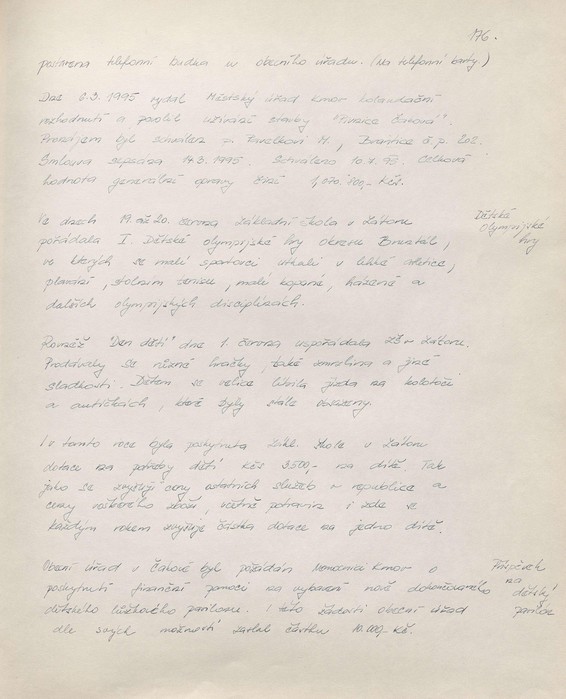 176.
postavena telefonní budka u obecního úřadu. (Na telefonní karty.)
Dne 6.3. 1995 vydal Městský úřad Krnov kolaudační
rozhodnutí a povolil užívání stavby "Pivnice Čaková".
Pronájem byl schválen p. Pavelkovi M., Brantice č.p. 202.
Smlouva sepsána 14.3.1995. Schváleno 10.4.95. Celková
hodnota generální opravy činí 1,070.700,- Kčs.
Ve dnech 19. až 20. června základní škola v Zátoru
Dětské
Olympijské
hry
pořádala I. Dětské olympijské hry okresu Bruntál,
ve kterých se malí sportovci utkali v lehké atletice,
plavání, stolním tenisu, malé kopané, házené a
dalších olympijských disciplínách.
Rovněž "Den dětí" dne 1. června uspořádala ZŠ v Zátoru.
Prodávaly se různé hračky, také zmrzlina a jiné
sladkosti. Dětem se velice líbila jízda na kolotoči
a autíčkách, které byly stále obsazeny.
I v tomto roce byla poskytnuta Zákl. škole v Zátoru
dotace na potřeby dětí Kčs 3.500,- na dítě. Tak
jako se zvyšují ceny ostatních služeb v republice a
ceny veškerého zboží, včetně potravin i zde se
každým rokem zvyšuje částka dotace na jedno dítě.
Obecní úřad v Čakové byl požádán Nemocnicí Krnov o
Příspěvek
na
dětský
pavilon
poskytnutí finanční pomoci na vybavení nově dokončovaného
dětského lůžkového pavilonu. I této žádosti obecní úřad
dle svých možností zaslal částku 10.000,- Kč.